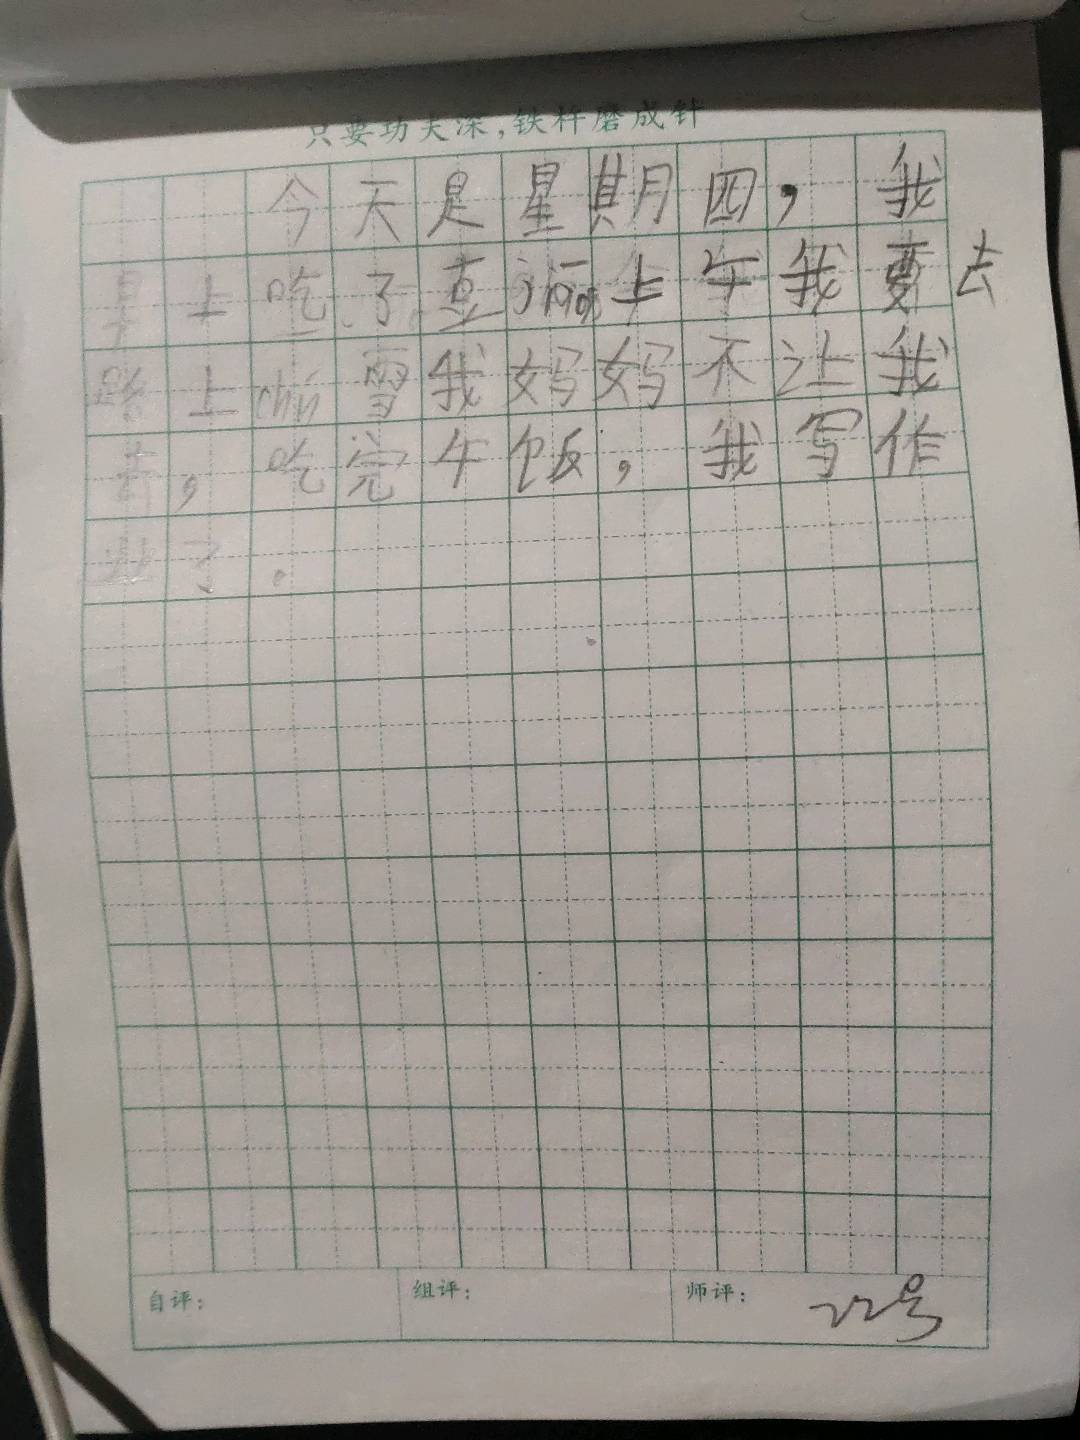 只要功夫深,铁杵磨成针
今天是星期四,我
早上吃了 上午我要去
路上chǎn雪我妈妈不让我
去,吃完午饭,我写作
业了.
自评: 组评: 师评: 22号